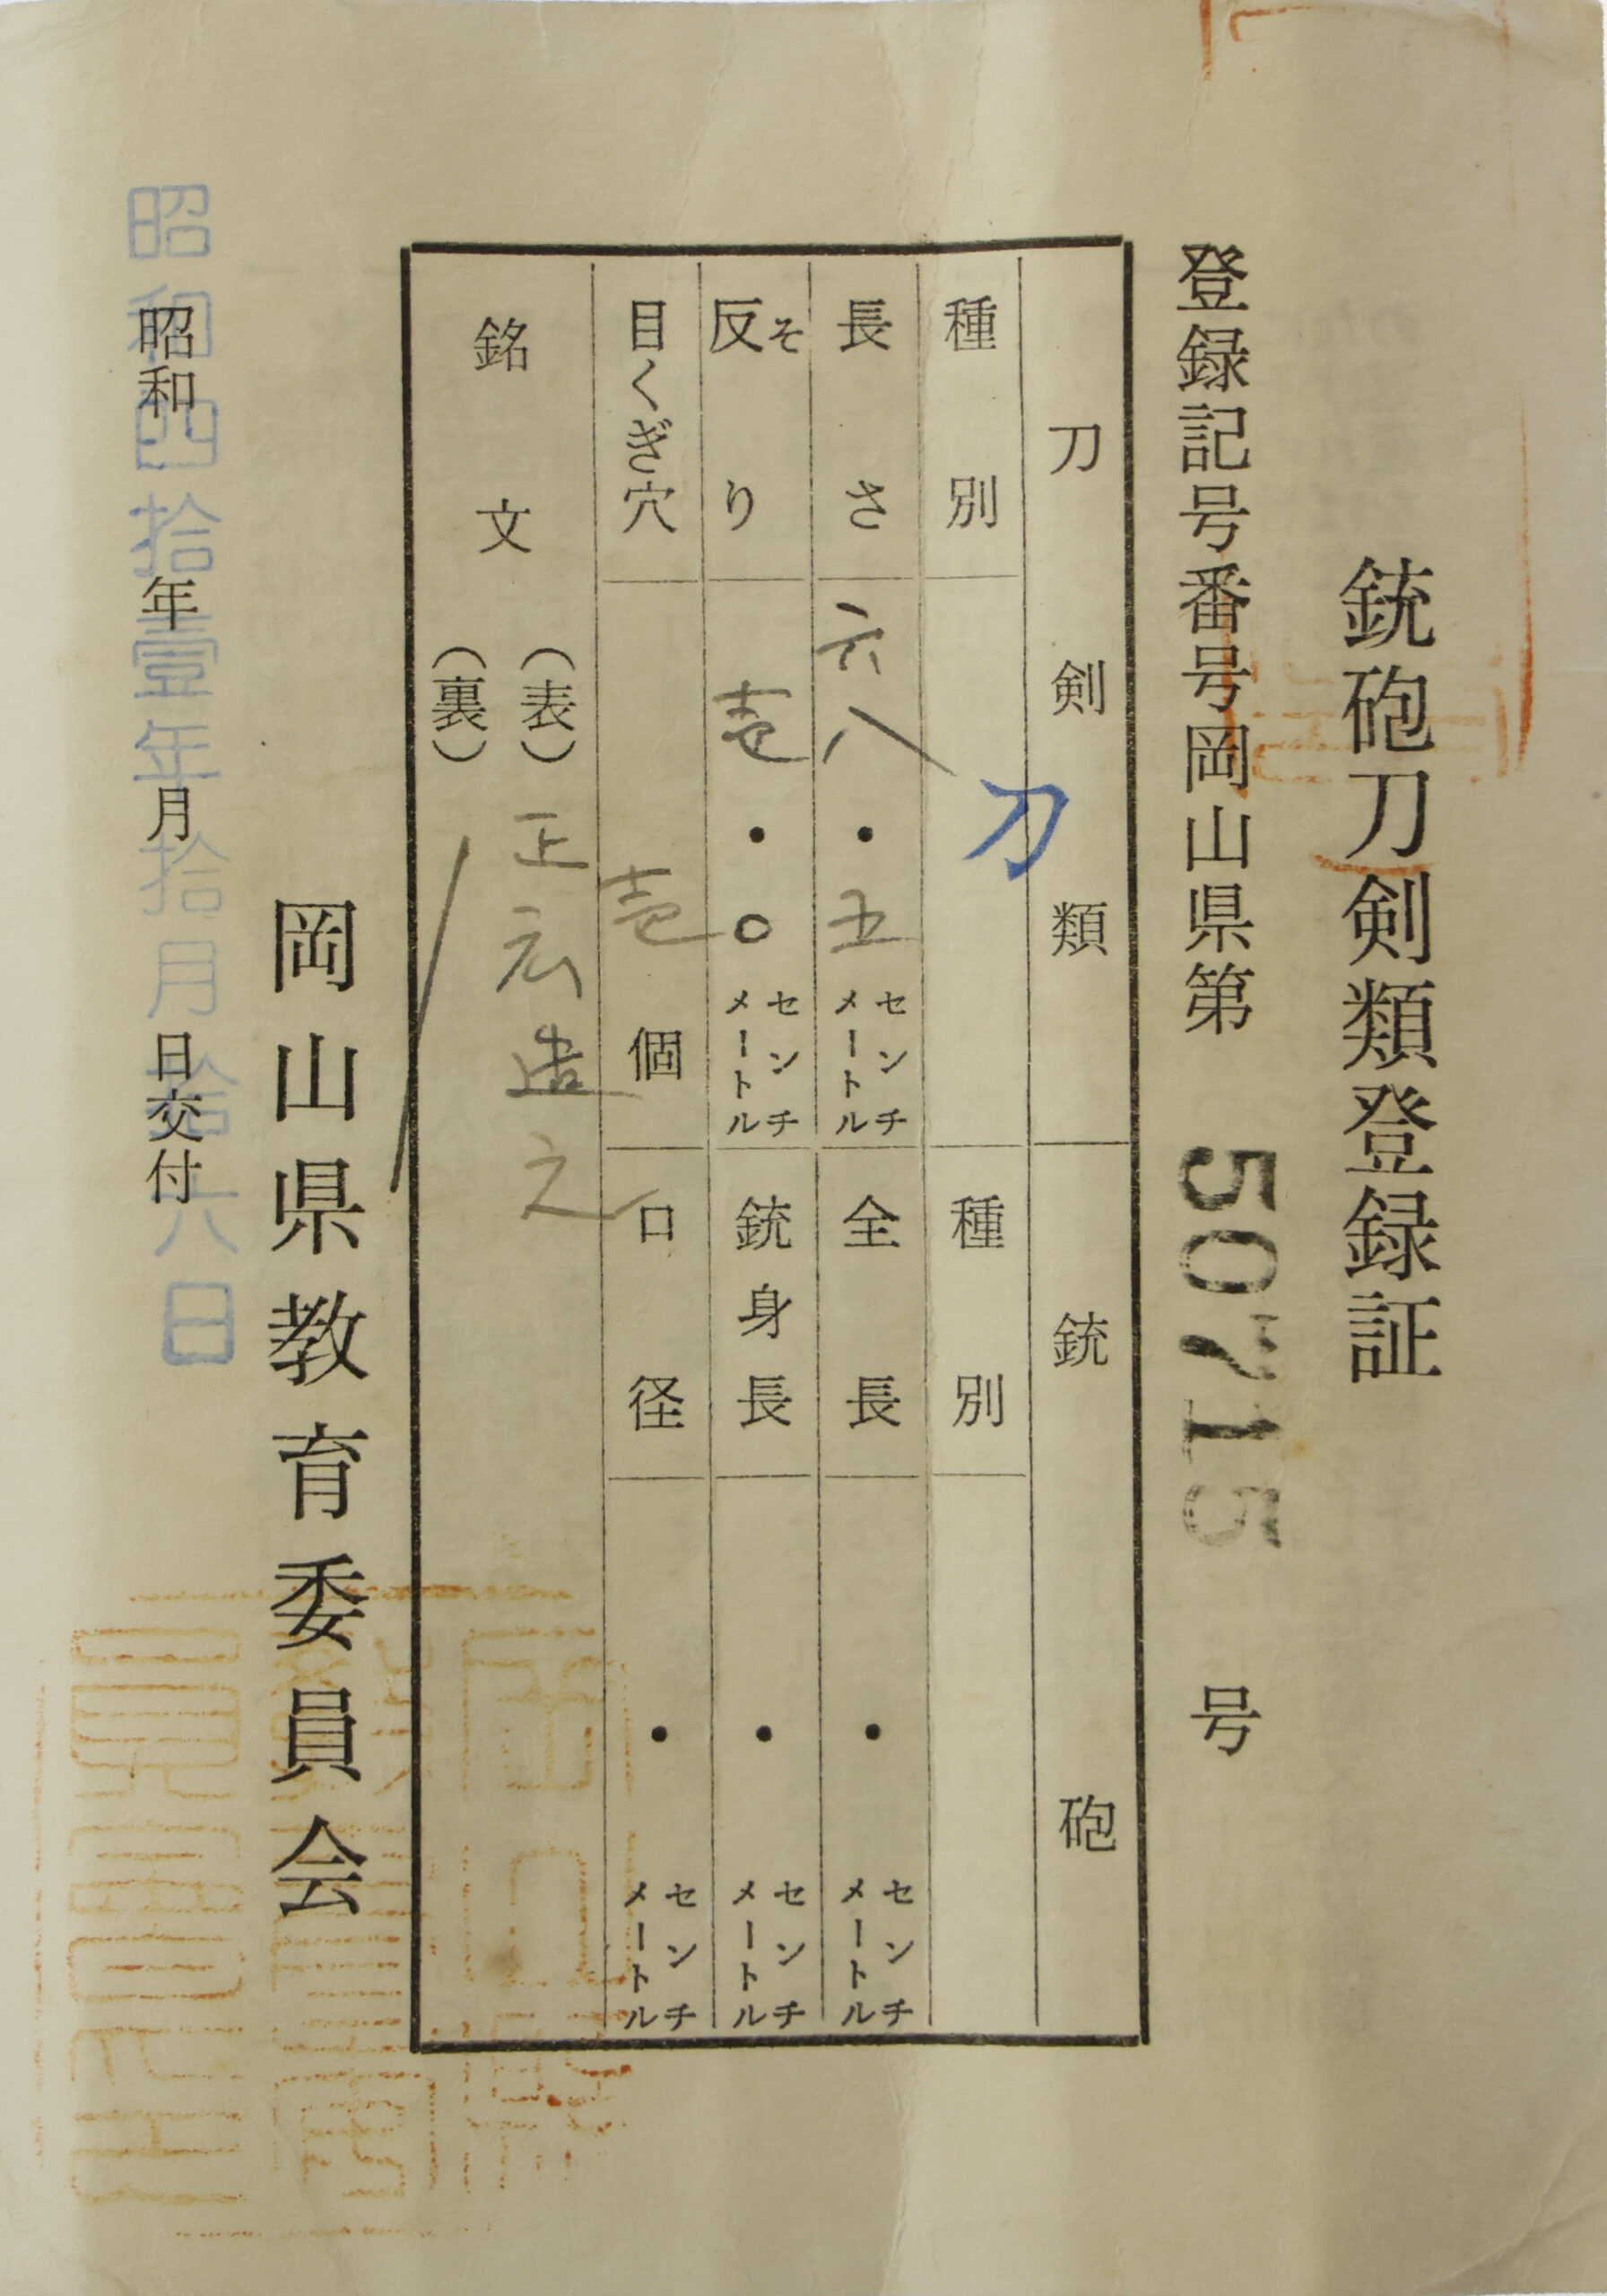 銃砲刀剣類登録証
登録記号番号岡山県第 50715 号
刀剣類
銃砲
種別 刀
種別
長さ 六八・五 センチメートル
全長 ・ センチメートル
反り そ 壱・〇 センチメートル
銃身長 ・ センチメートル
目くぎ穴 壱 個
口径 ・ センチメートル
銘文 (表) 正広造之
(裏)
岡山県教育委員会
昭和 年 月 日交付
昭和四拾壹年拾月拾六日